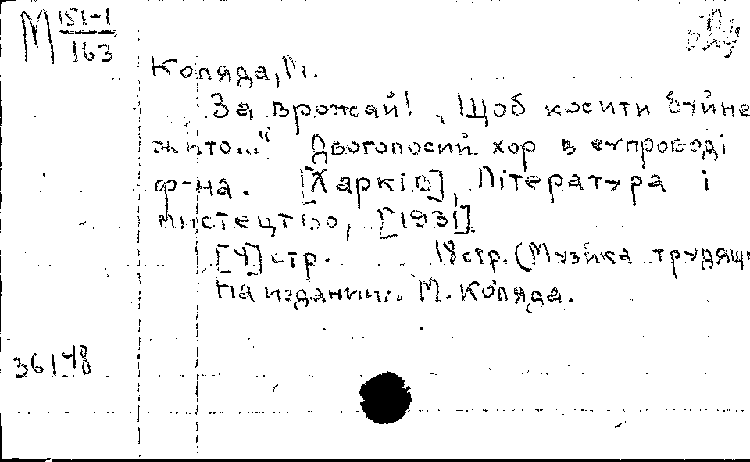 М 151-1
163
Коляда, М.
За врожай! "Щоб косити буйне
жито..." Двоголосий хор в супроводі
ф-на. [Харків], Література і
мистецтво, [1931].
[4] стр. 18 стр. (Музика трудящ
На издании: М. Коляда.
36148